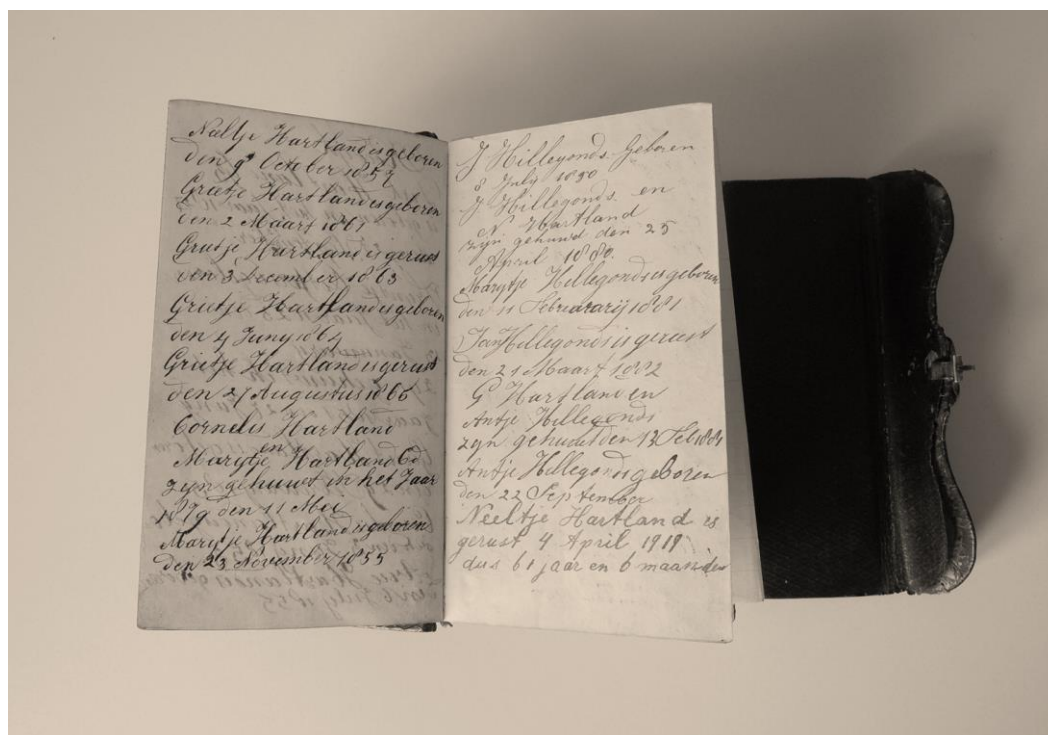 Neeltje Hartland is geboren
den 9 October 1857
Grietje Hartland is geboren
den 2 Maart 1861
Grietje Hartland is gerust
den 3 December 1863
Grietje Hartland is geboren
den 4 Juny 1864
Grietje Hartland is gerust
den 27 Augustus 1866
Cornelis Hartland
en
Marijtje Hartland Cd
zyn gehuwt in het Jaar
1879 den 11 Mei
Marijtje Hartland is geboren
den 23 November 1855
J Hillegonds Geboren
8 July 1850
J Hillegonds en
N Hartland
zyn gehuwd den 25
April 1880.
Marijtje Hillegonds is geboren
den 11 Februararij 1881
Jan Hillegonds is gerust
den 21 Maart 1882
G Hartland en
Antje Hillegonds
zyn gehudt den 13 Feb 1881
Antje Hillegonds geBoren
den 22 September
Neeltje Hartland is
gerust 4 April 1919
dus 61 jaar en 6 maanden